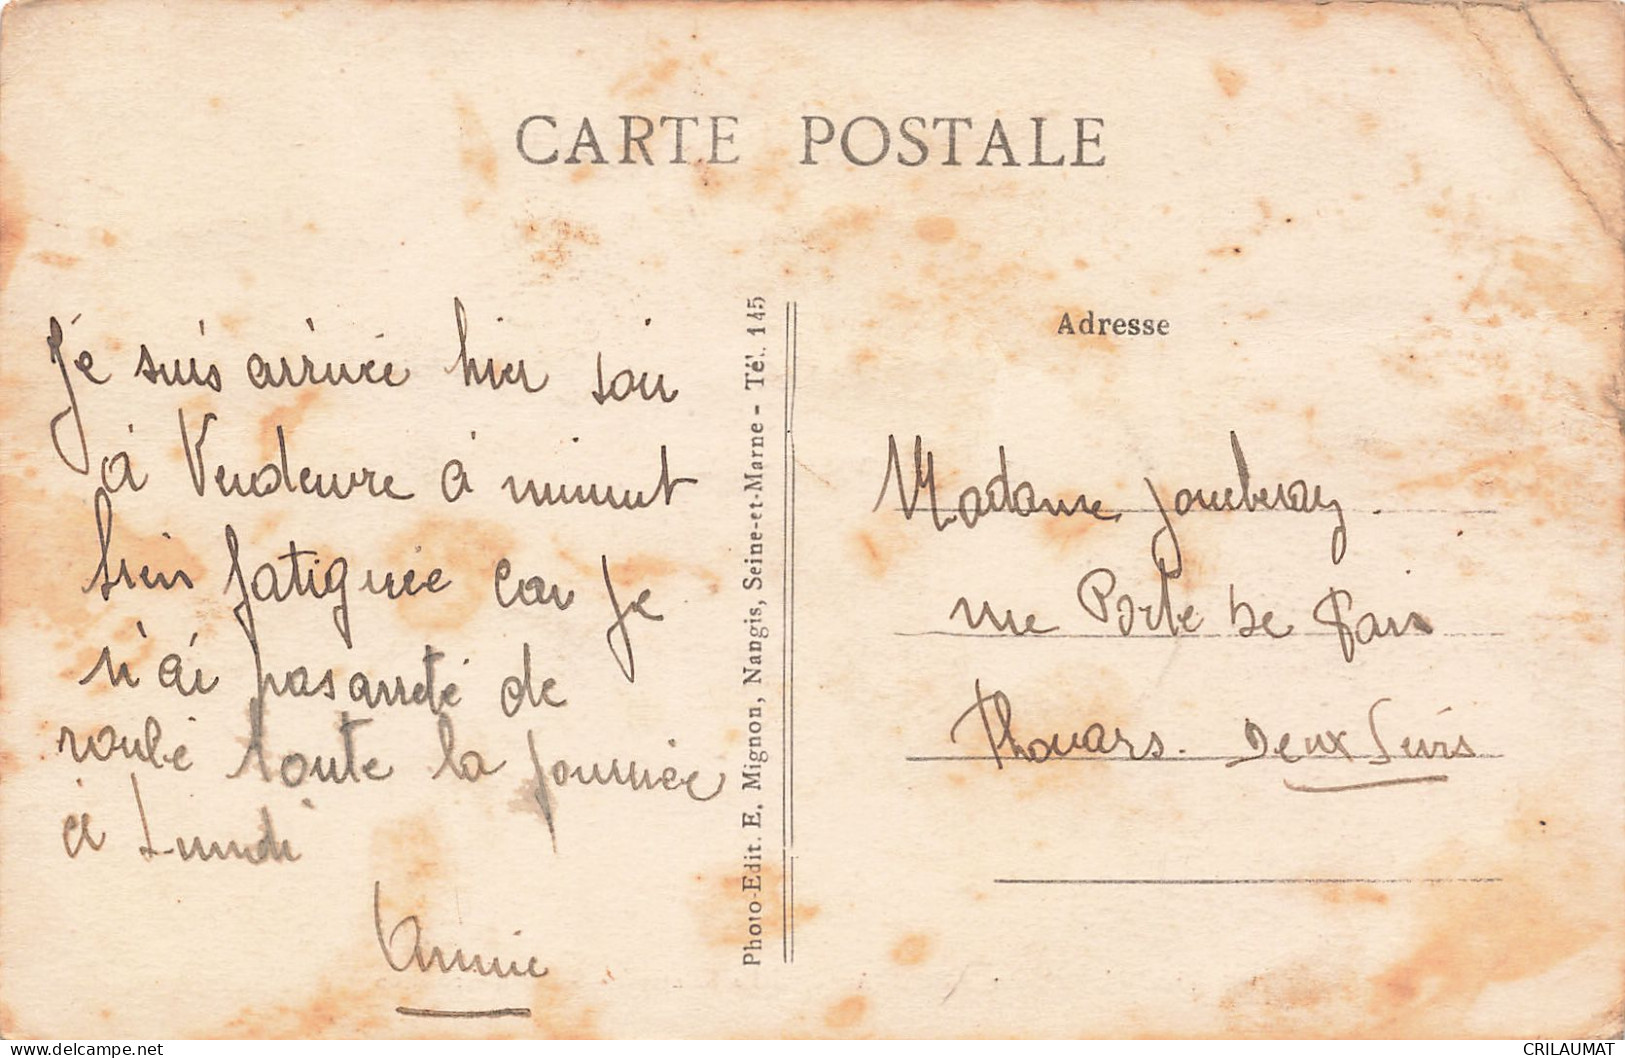 CARTE POSTALE
Je suis arrivée hier soir
à Vendeuvre à minuit
bien fatiguée car je
n'ai pas arreté de
roulé toute la journée
à Lundi
Annie
Photo-Edit. E. Mignon, Nangis, Seine-et-Marne - Tél. 145
Adresse
Madame
rue Porte de Paris
Thouars. Deux Sevrs
delcampe.net
CRILAUMAT